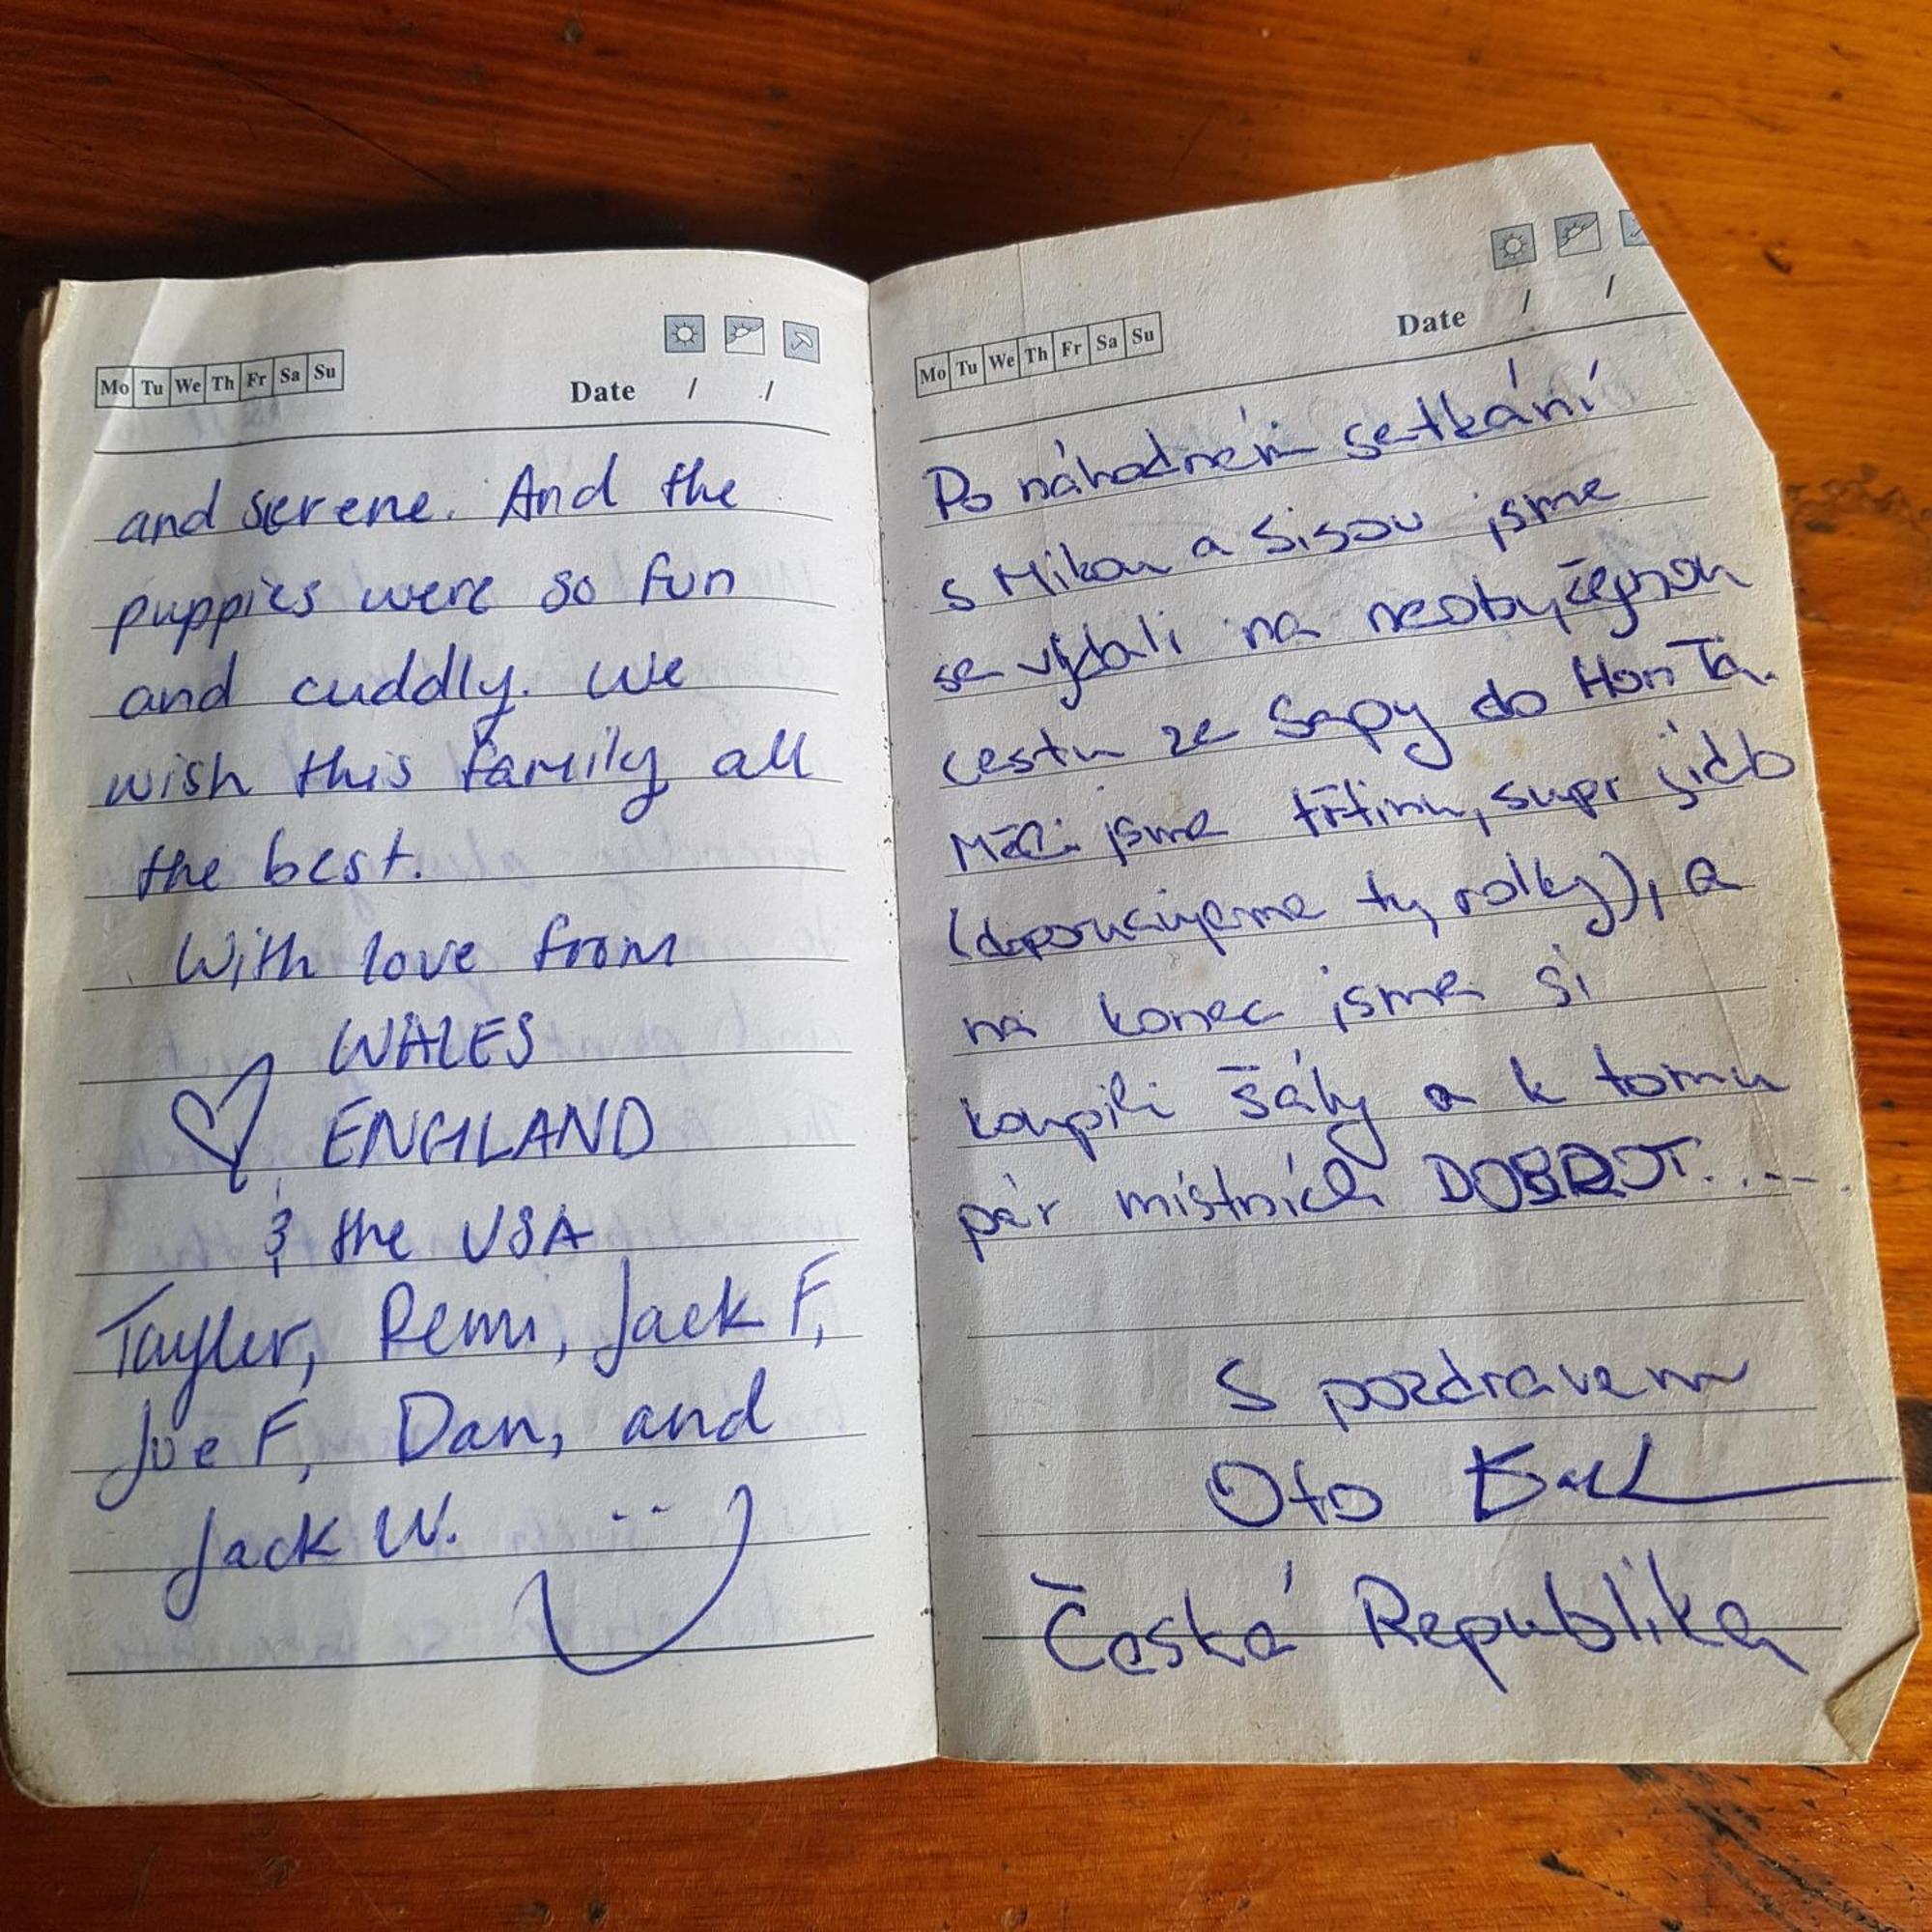 Mo Tu We Th Fr Sa Su
Date / /
and serene. And the
puppies were so fun
and cuddly. We
wish this family all
the best.
With love from
WALES
ENGLAND
& the USA
Tayler, Remi, Jack F,
Joe F, Dan, and
Jack W.
Mo Tu We Th Fr Sa Su
Date / /
Po náhodném setkání
s Mikou a Sisou jsme
se vydali na neobyčejnou
cestu ze Sapy do Hon Ta.
Měli jsme třtinu, supr jídlo
(doporučujeme ty rolky), a
na konec jsme si
koupili šály a k tomu
pár místních DOBROT.....
S pozdravem
Oto
Česká Republika